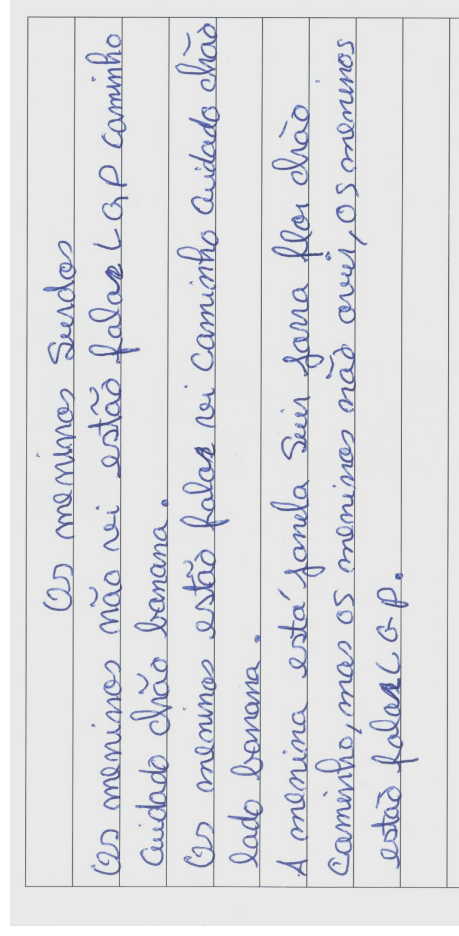 Os meninos Surdos
Os meninos não vi estão falar LGP caminho
cuidado chão banana.
Os meninos estão falar vi caminho cuidado chão
lado banana.
A menina está janela Seur jarra flor chão
caminho, mas os meninos não ouvir, os meninos
estão falar LGP.